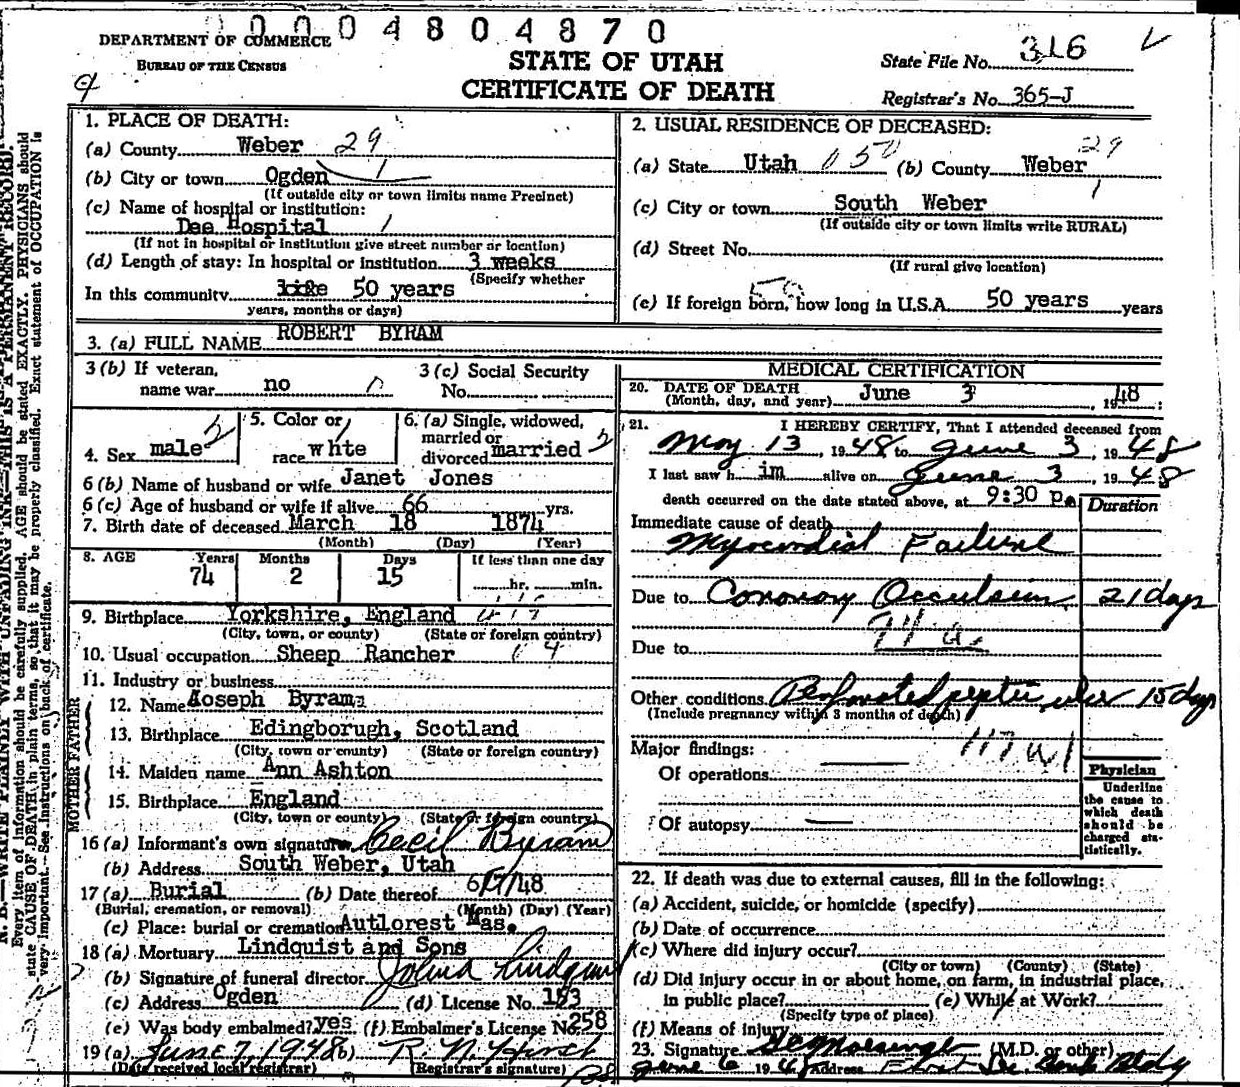 0004804870
DEPARTMENT OF COMMERCE
BUREAU OF THE CENSUS
STATE OF UTAH
CERTIFICATE OF DEATH
State File No. 316
Registrar's No. 365-J
1. PLACE OF DEATH:
(a) County Weber 29
(b) City or town Ogden 1
(If outside city or town limits name Precinct)
(c) Name of hospital or institution:
Dee Hospital 1
(If not in hospital or institution give street number or location)
(d) Length of stay: In hospital or institution 3 weeks
(Specify whether
In this community life 50 years
years, months or days)
2. USUAL RESIDENCE OF DECEASED:
(a) State Utah 050 (b) County Weber 29
1
(c) City or town South Weber
(If outside city or town limits write RURAL)
(d) Street No.
(If rural give location)
(e) If foreign born, how long in U.S.A. 50 years years
3. (a) FULL NAME ROBERT BYRAM
3 (b) If veteran, name war no 3 (c) Social Security No.
4. Sex male 5. Color or race whte 6. (a) Single, widowed, married or divorced married
6 (b) Name of husband or wife Janet Jones
6 (c) Age of husband or wife if alive 66 yrs.
7. Birth date of deceased March 18 1874
(Month) (Day) (Year)
8. AGE Years Months Days If less than one day
74 2 15 hr. min.
9. Birthplace Yorkshire, England
(City, town, or county) (State or foreign country)
10. Usual occupation Sheep Rancher
11. Industry or business
FATHER
12. Name Aoseph Byram
13. Birthplace Edingborugh, Scotland
(City, town or county) (State or foreign country)
MOTHER
14. Maiden name Ann Ashton
15. Birthplace England
(City, town or county) (State or foreign country)
16 (a) Informant's own signature Cecil Byram
(b) Address South Weber, Utah
17 (a) Burial (b) Date thereof 6/7/48
(Burial, cremation, or removal) (Month) (Day) (Year)
(c) Place: burial or cremation Autlorest Mas.
18 (a) Mortuary Lindquist and Sons
(b) Signature of funeral director
(c) Address Ogden (d) License No. 153
(e) Was body embalmed? yes (f) Embalmer's License No. 258
19 (a) June 7, 1948 (b) R. N. Hirst
(Date received local registrar) (Registrar's signature)
MEDICAL CERTIFICATION
20. DATE OF DEATH June 3 , 1948
(Month, day, and year)
21. I HEREBY CERTIFY, That I attended deceased from
May 13 1948 to June 3, 1948
I last saw him alive on June 3, 1948
death occurred on the date stated above, at 9:30 p.
Duration
Immediate cause of death
Myocardial Failure
Due to Coronary Occulsion 21 days
Due to
Other conditions Perforated peptic ulcer 15 days
(Include pregnancy within 3 months of death)
Major findings:
Of operations
Of autopsy
Physician
Underline
the cause to
which death
should be
charged sta-
tistically.
22. If death was due to external causes, fill in the following:
(a) Accident, suicide, or homicide (specify)
(b) Date of occurrence
(c) Where did injury occur?
(City or town) (County) (State)
(d) Did injury occur in or about home, on farm, in industrial place,
in public place? (e) While at Work?
(Specify type of place)
(f) Means of injury
23. Signature (M.D. or other)
June 6 1948 Address Bldg
N. B.—WRITE PLAINLY WITH UNFADING INK—THIS IS A PERMANENT RECORD.
Every item of information should be carefully supplied. AGE should be stated EXACTLY. PHYSICIANS should
state CAUSE OF DEATH in plain terms, so that it may be properly classified. Exact statement of OCCUPATION is
very important. See instructions on back of certificate.